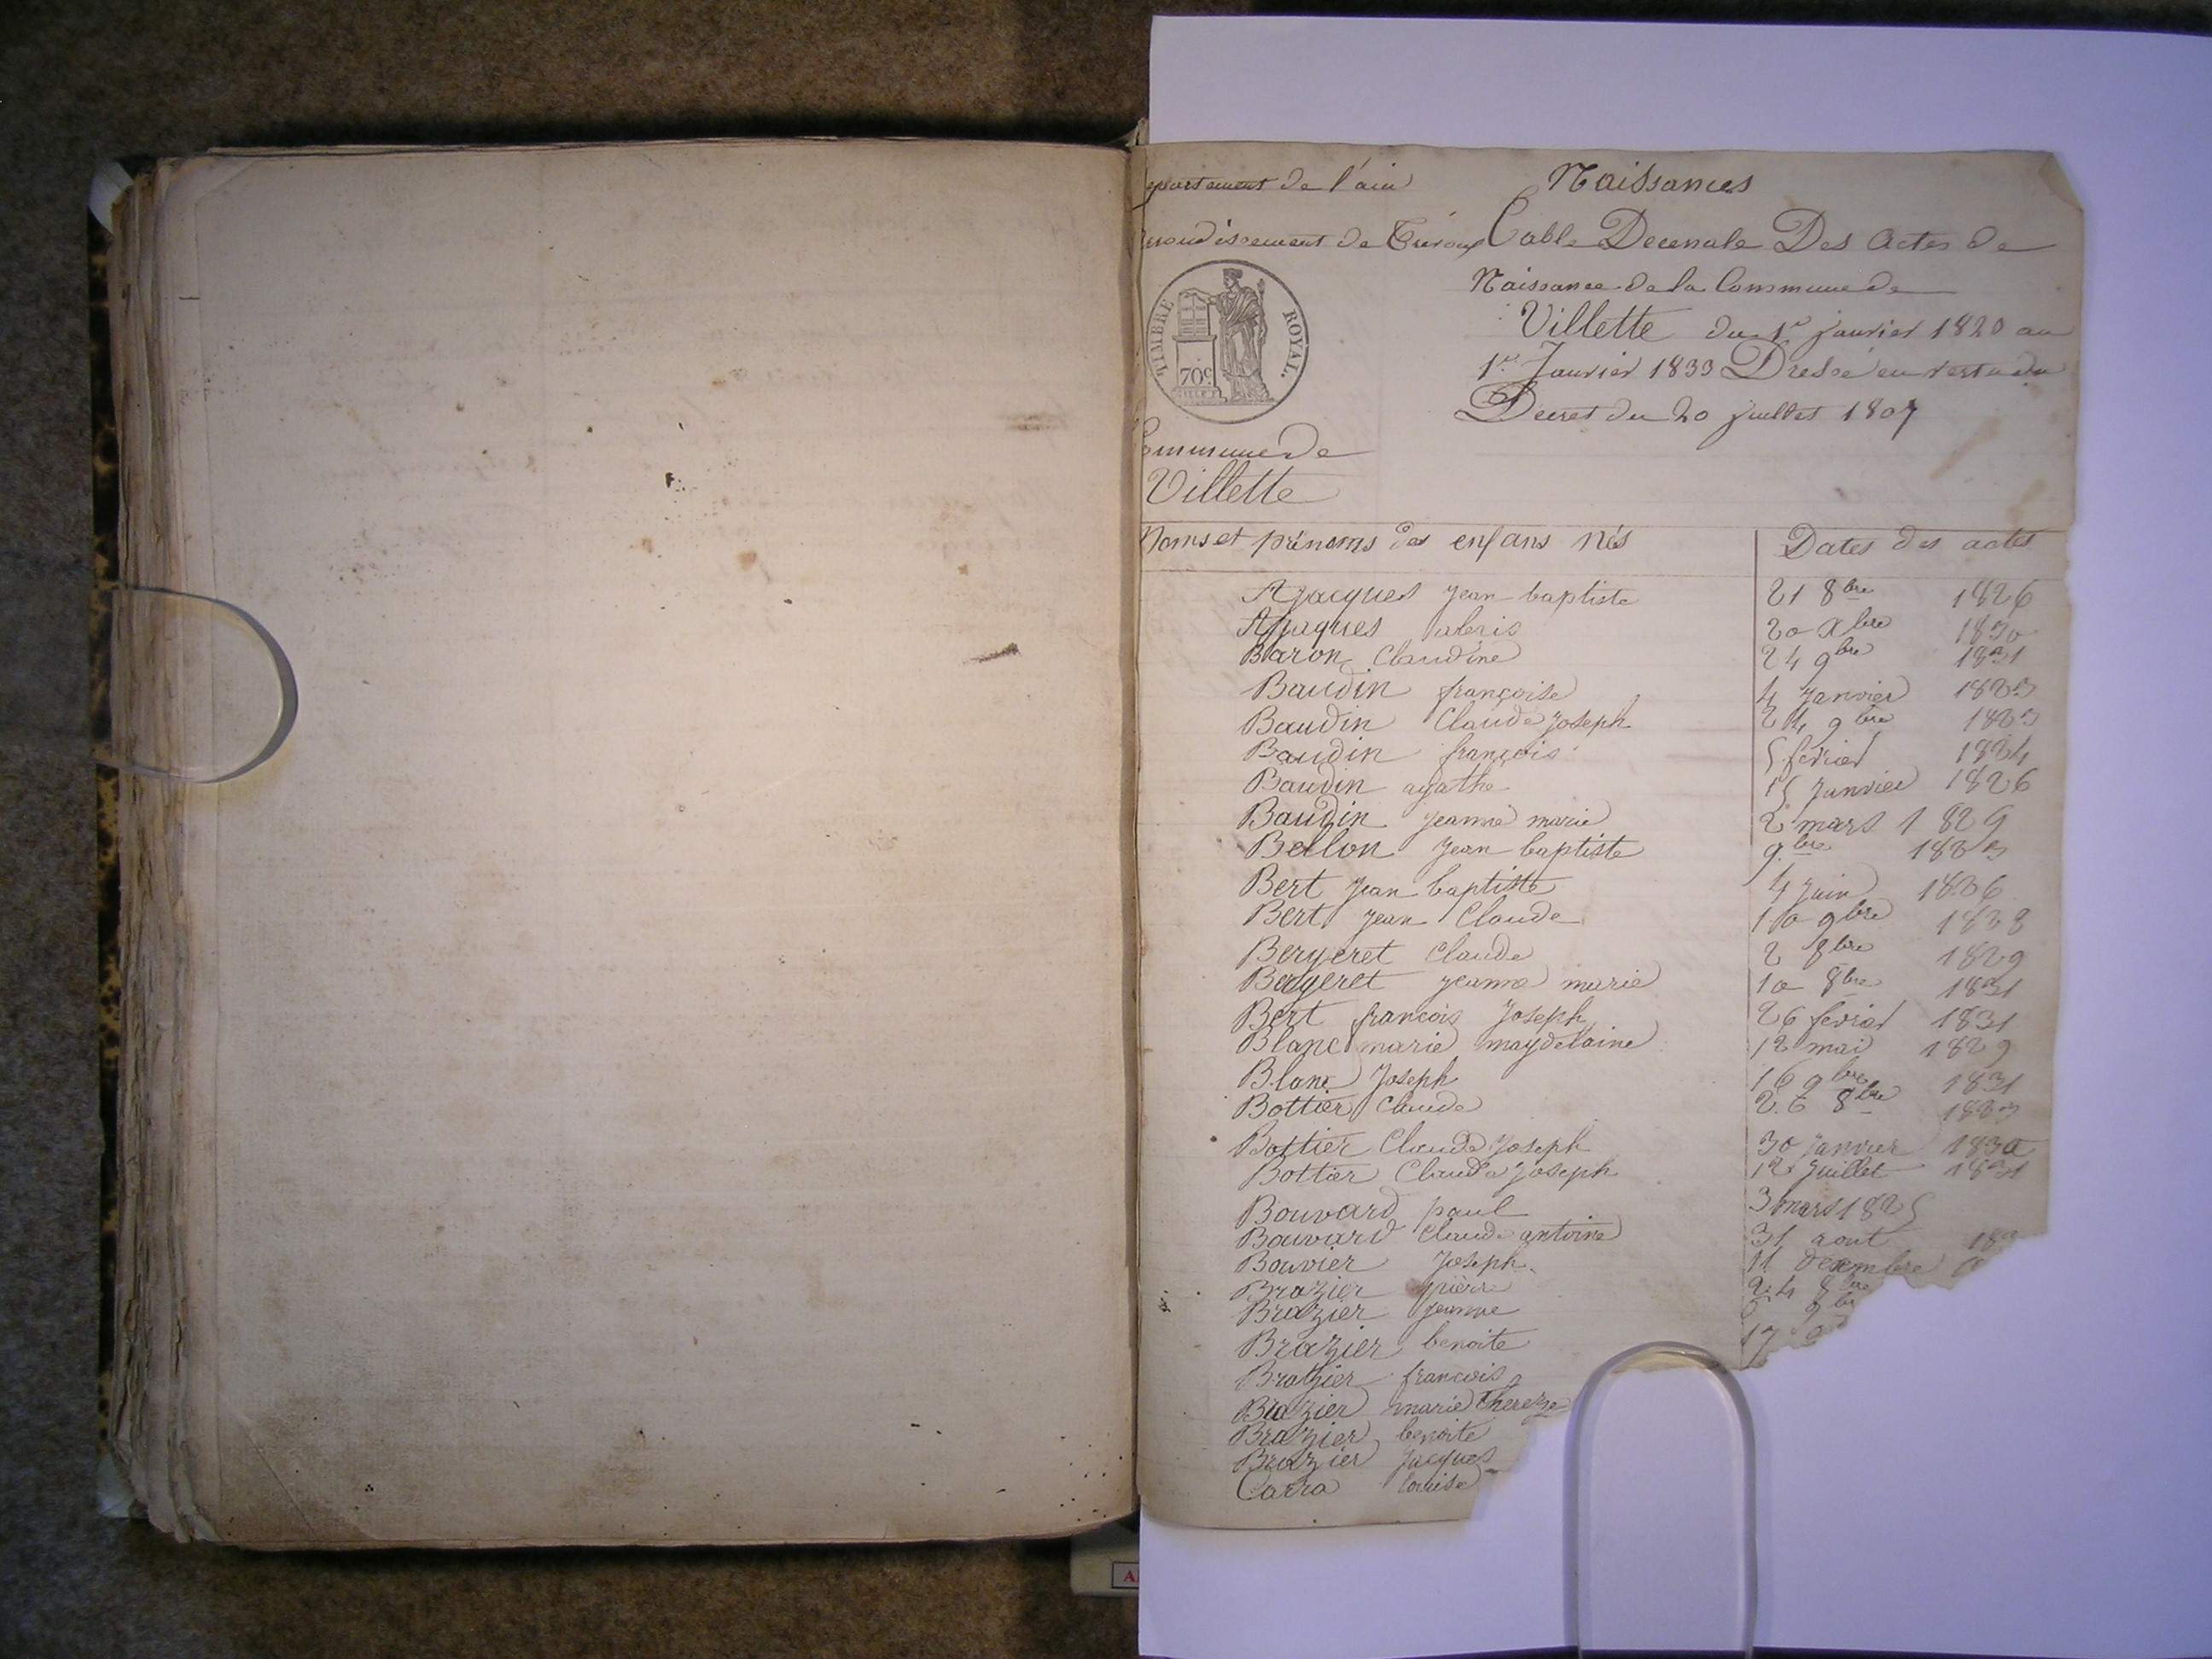 epartement de l'ain
Naissances
rrondissement de Trévoux
Table Decenale Des Actes de
Naissance de la Commune de
Villette du 1er janvier 1820 au
1er Janvier 1833 Dressé en vertu du
Decret du 20 juillet 1807
TIMBRE ROYAL.
70c
ommune de
Villette
Noms et prénoms des enfans nés
Dates des actes
Ajacques jean baptiste 21 8bre 1826
Ajaques 20 Xbre 1830
Baron Claudine 24 9bre 1831
Baudin françoise 4 Janvier 1823
Baudin Claude Joseph 24 9bre 1823
Baudin françois 5 février 1824
Baudin agathe 15 Janvier 1826
Baudin jeanne marie 2 mars 1829
Bellon Jean baptiste 9bre
Bert Jean baptiste 4 Juin 1826
Bert jean Claude 10 9bre
Bergeret Claude 2 8bre 1829
Bergeret jeanne marie 10 8bre 1831
Bert francois Joseph 26 fevrier 1831
Blanc marie magdelaine 12 mai 1829
Blanc Joseph 16 9bre 1831
Bottier Claude 26 8bre 1823
Bottier Claude Joseph 30 Janvier 1830
Bottier Claude Joseph 12 Juillet 1831
Bouvard paul 3 mars 1825
Bouvard Claude antoine 31 aout
Bouvier Joseph 11 decembre
Brazier pièrre 24 8bre
Brazier jeanne
Brazier benoite 17
Brazier francois
Brazier marie Therezze
Brazier benoite
Brazier Jacques
Carra louise